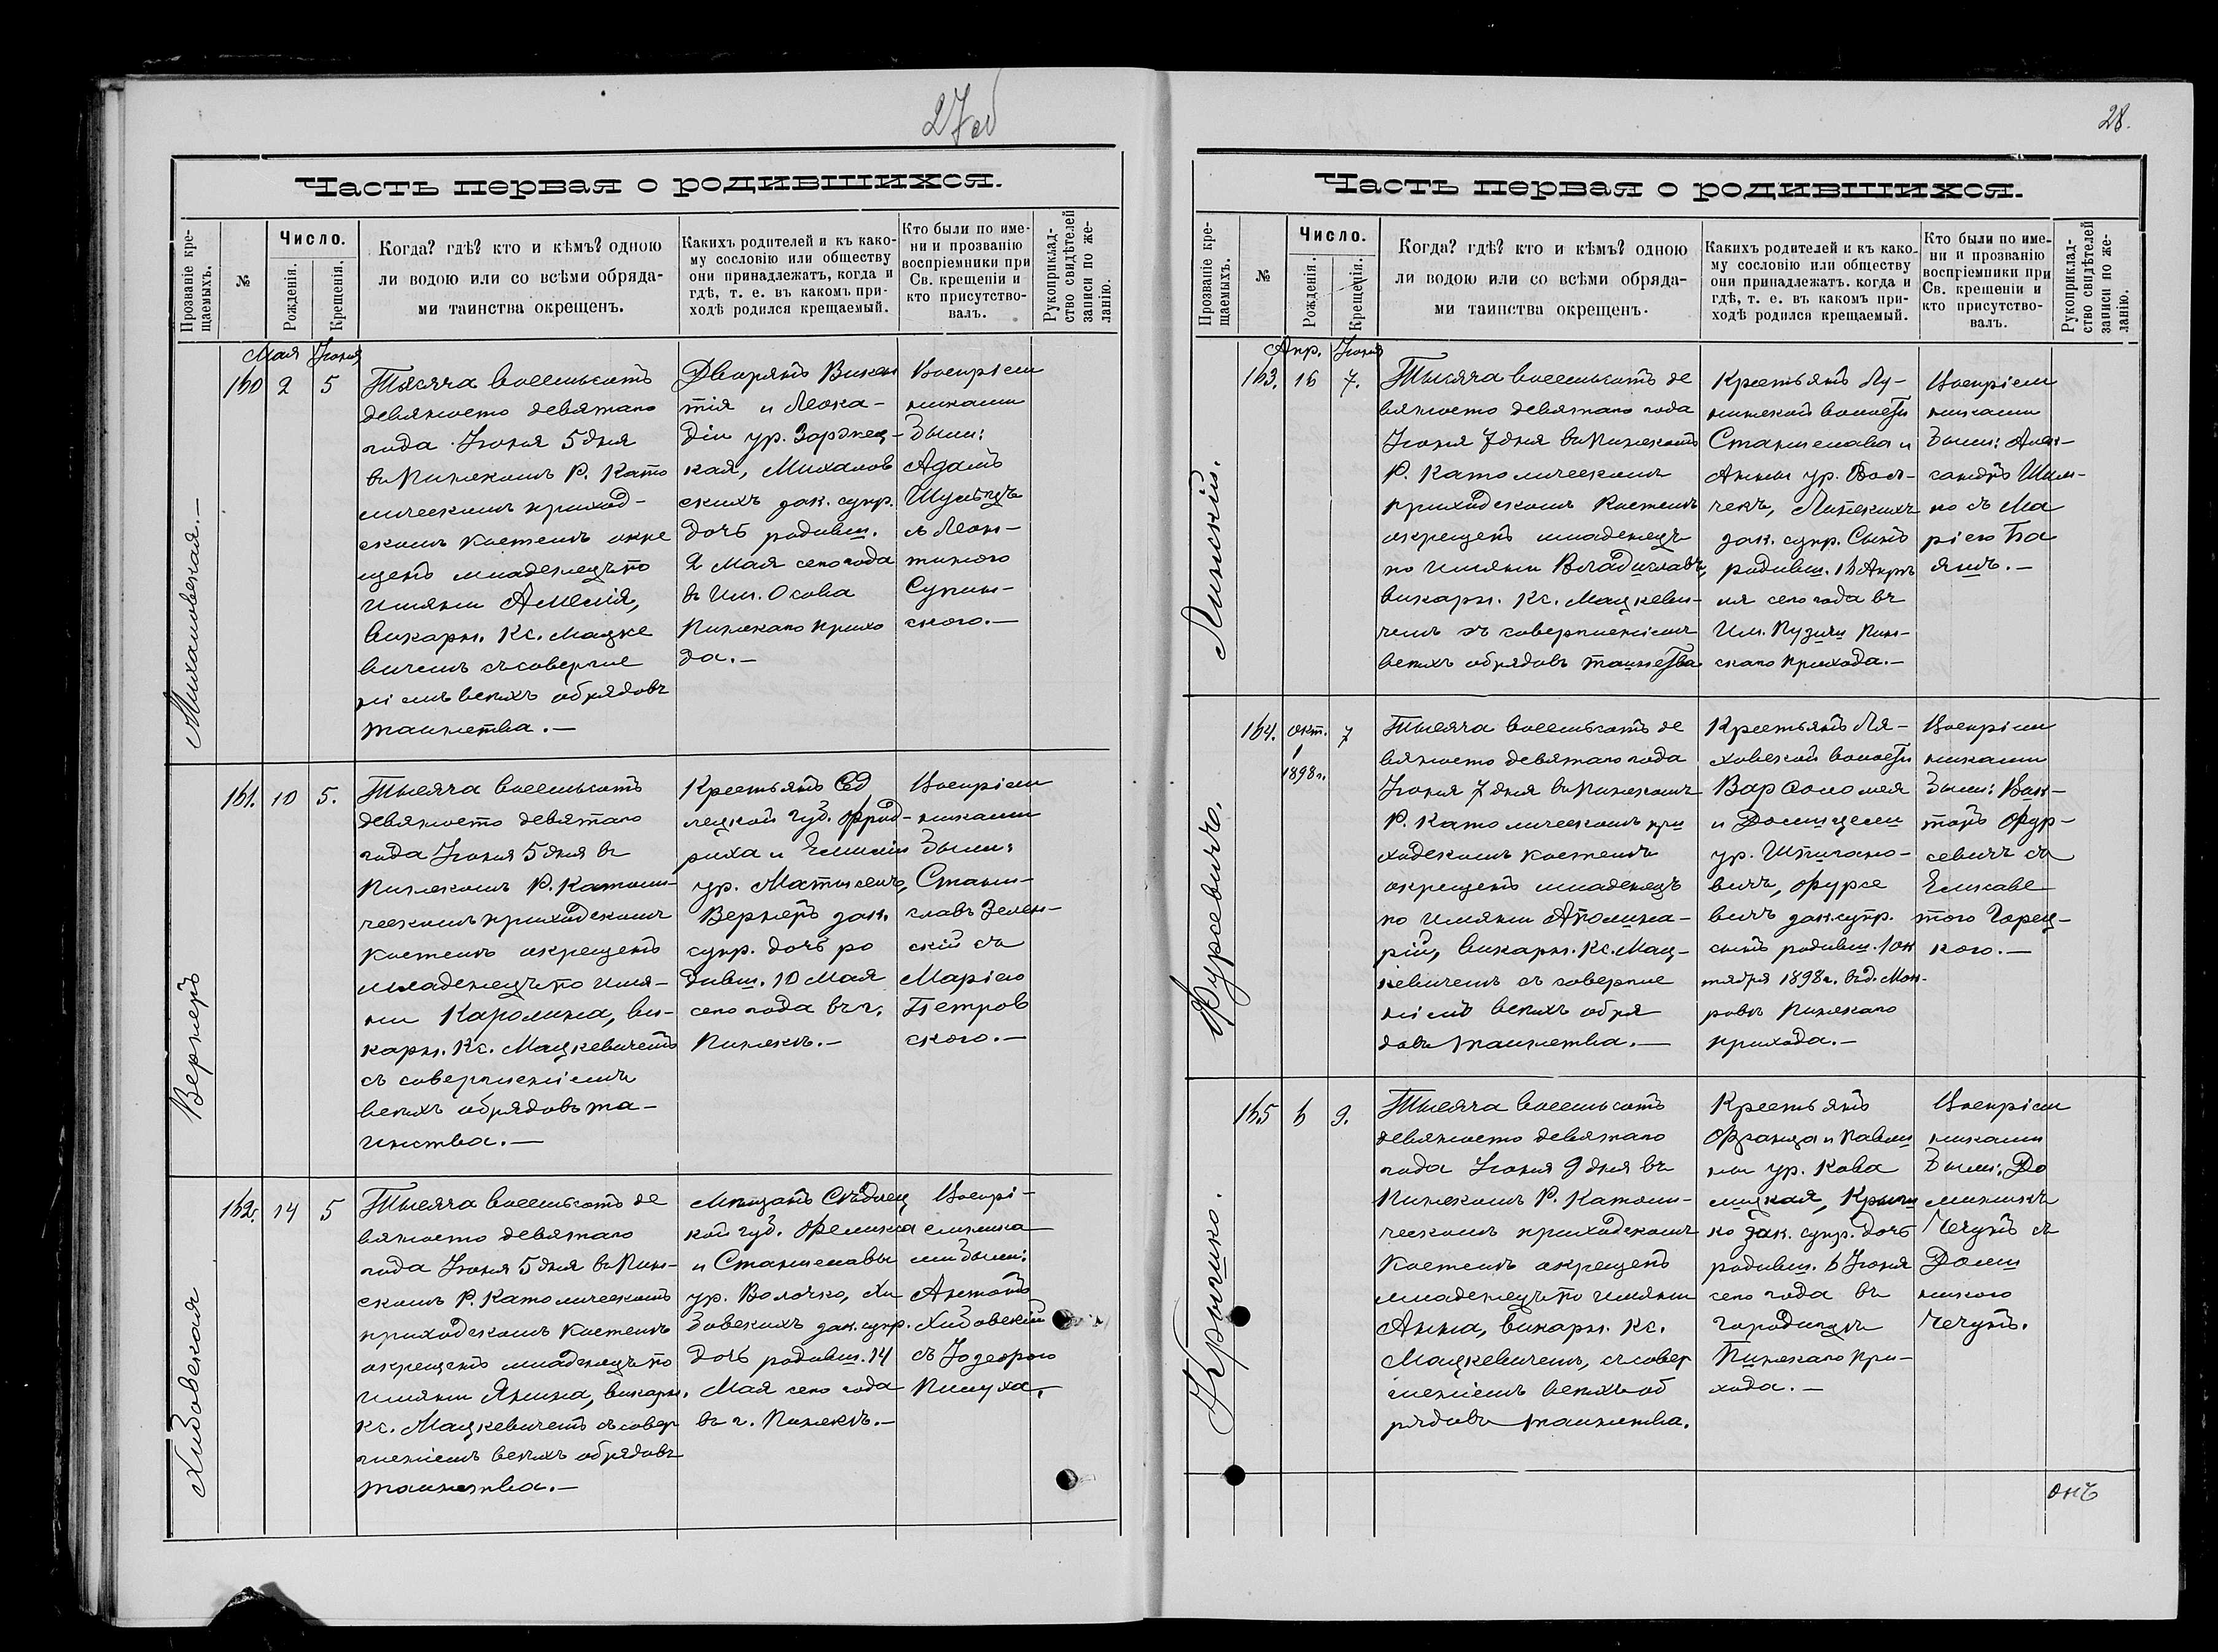 27об
Часть первая о родившихся.
Прозваніе кре-
щаемыхъ.
№
Число.
Рожденія.
Крещенія.
Когда? гдѣ? кто и кѣмъ? одною
ли водою или со всѣми обряда-
ми таинства окрещенъ.
Какихъ родителей и къ како-
му сословію или обществу
они принадлежатъ, когда и
гдѣ, т. е. въ какомъ при-
ходѣ родился крещаемый.
Кто были по име-
ни и прозванію
воспріемники при
Св. крещеніи и
кто присутство-
валъ.
Рукоприклад-
ство свидѣтелей
записи по же-
ланію.
Михаловская.—
Мая Іюня
160 2 5
Тысяча восемьсотъ
девяносто девятаго
года Іюня 5 дня
въ Пинскомъ Р. Като
лическомъ приход-
скомъ костелѣ окре
щенъ младенецъ по
имяни Амелія,
викарн. Кс. Мацке
вичемъ съ соверше
ніемъ всѣхъ обрядовъ
таинства.—
Дворянъ Викен
тія и Леока-
діи ур. Заржец-
кая, Михалов
скихъ зак. супр.
дочь родивш.
2 Мая сего года
въ Им. Осова
Пинскаго прихо
да.—
Воспріем
никами
были:
Адамъ
Шульцъ
съ Леон-
тиною
Супин-
скою.—
Вернеръ
161. 10 5.
Тысяча восемьсотъ
девяносто девятаго
года Іюня 5 дня въ
Пинскомъ Р. Католи-
ческомъ приходскомъ
костелѣ окрещенъ
младенецъ по имя-
ни Каролина, ви-
карн. Кс. Мацкевичемъ
съ совершеніемъ
всѣхъ обрядовъ та-
инства.—
Крестьянъ Сѣд
лецкой губ. Фрид-
риха и Емиліи
ур. Матысекъ,
Вернеръ зак.
супр. дочь ро
дивш. 10 Мая
сего года въ г.
Пинскѣ.—
Воспріем
никами
были:
Стани-
славъ Зелен-
скій съ
Маріею
Петров
скою.—
Хибовская
162. 14 5
Тысяча восемьсотъ де
вяносто девятаго
года Іюня 5 дня въ Пин-
скомъ Р. Католическомъ
приходскомъ костелѣ
окрещенъ младенецъ по
имяни Янина, викарн.
Кс. Мацкевичемъ съ совер
шеніемъ всѣхъ обрядовъ
таинства.—
Мѣщанъ Сѣдлец
кой губ. Феликса
и Станиславы
ур. Волочко, Хи
бовскихъ зак. супр.
дочь родивш. 14
Мая сего года
въ г. Пинскѣ.—
Воспрі-
емника
ми были:
Антонъ
Хибовскій
съ Іозефою
Пилуха.
28.
Часть первая о родившихся.
Прозваніе кре-
щаемыхъ.
№
Число.
Рожденія.
Крещенія.
Когда? гдѣ? кто и кѣмъ? одною
ли водою или со всѣми обряда-
ми таинства окрещенъ.
Какихъ родителей и къ како-
му сословію или обществу
они принадлежатъ. когда и
гдѣ, т. е. въ какомъ при-
ходѣ родился крещаемый.
Кто были по име-
ни и прозванію
воспріемники при
Св. крещеніи и
кто присутство-
валъ.
Рукоприклад-
ство свидѣтелей
записи по же-
ланію.
Линскій.
Апр. Іюня
163. 16 7.
Тысяча восемьсотъ де
вяносто девятаго года
Іюня 7 дня въ Пинскомъ
Р. Католическомъ
приходскомъ костелѣ
окрещенъ младенецъ
по имяни Владиславъ,
викарн. Кс. Мацкеви-
чемъ съ совершеніемъ
всѣхъ обрядовъ таинства
Крестьянъ Лу-
нинской волости
Станислава и
Анны ур.
Линскихъ
зак. супр. сынъ
родивш. 16 Апрѣ
ля сего года въ
Им. Пузичи Пин-
скаго прихода.—
Воспріем
никами
были: Алек-
сандръ Шим-
ко съ Ма
ріею Ба
янъ.—
Фурсевичъ.
164. окт. 7
1
1898г.
Тысяча восемьсотъ де
вяносто девятаго года
Іюня 7 дня въ Пинскомъ
Р. Католическомъ при
ходскомъ костелѣ
окрещенъ младенецъ
по имяни Аполина-
рій, викарн. Кс. Мац-
кевичемъ съ соверше
ніемъ всѣхъ обря
довъ таинства.—
Крестьянъ Ля-
ховской волости
Варфоломея
и Домицели
ур. Шпигано-
вичъ, Фурсе
вичъ зак. супр.
сынъ родивш. 1 ок
тября 1898г. въ д. Мок-
ровѣ Пинскаго
прихода.—
Воспріем
никами
были: Вик-
торъ Фур-
севичъ съ
Елисаве
тою Горец-
кою.—
Крычико.
165 6 9.
Тысяча восемьсотъ
девяносто девятаго
года Іюня 9 дня въ
Пинскомъ Р. Католи-
ческомъ приходскомъ
костелѣ окрещенъ
младенецъ по имяни
Анна, викарн. Кс.
Мацкевичемъ, съ совер
шеніемъ всѣхъ об
рядовъ таинства.
Крестьянъ
Франца и Павли
ны ур. Кова
лицкая, Крычи
ко зак. супр. дочь
родивш. 6 Іюня
сего года въ
Городищѣ
Пинскаго при-
хода.—
Воспріем
никами
были: До
миникъ
Чечунъ съ
Доми
никою
Чечунъ.